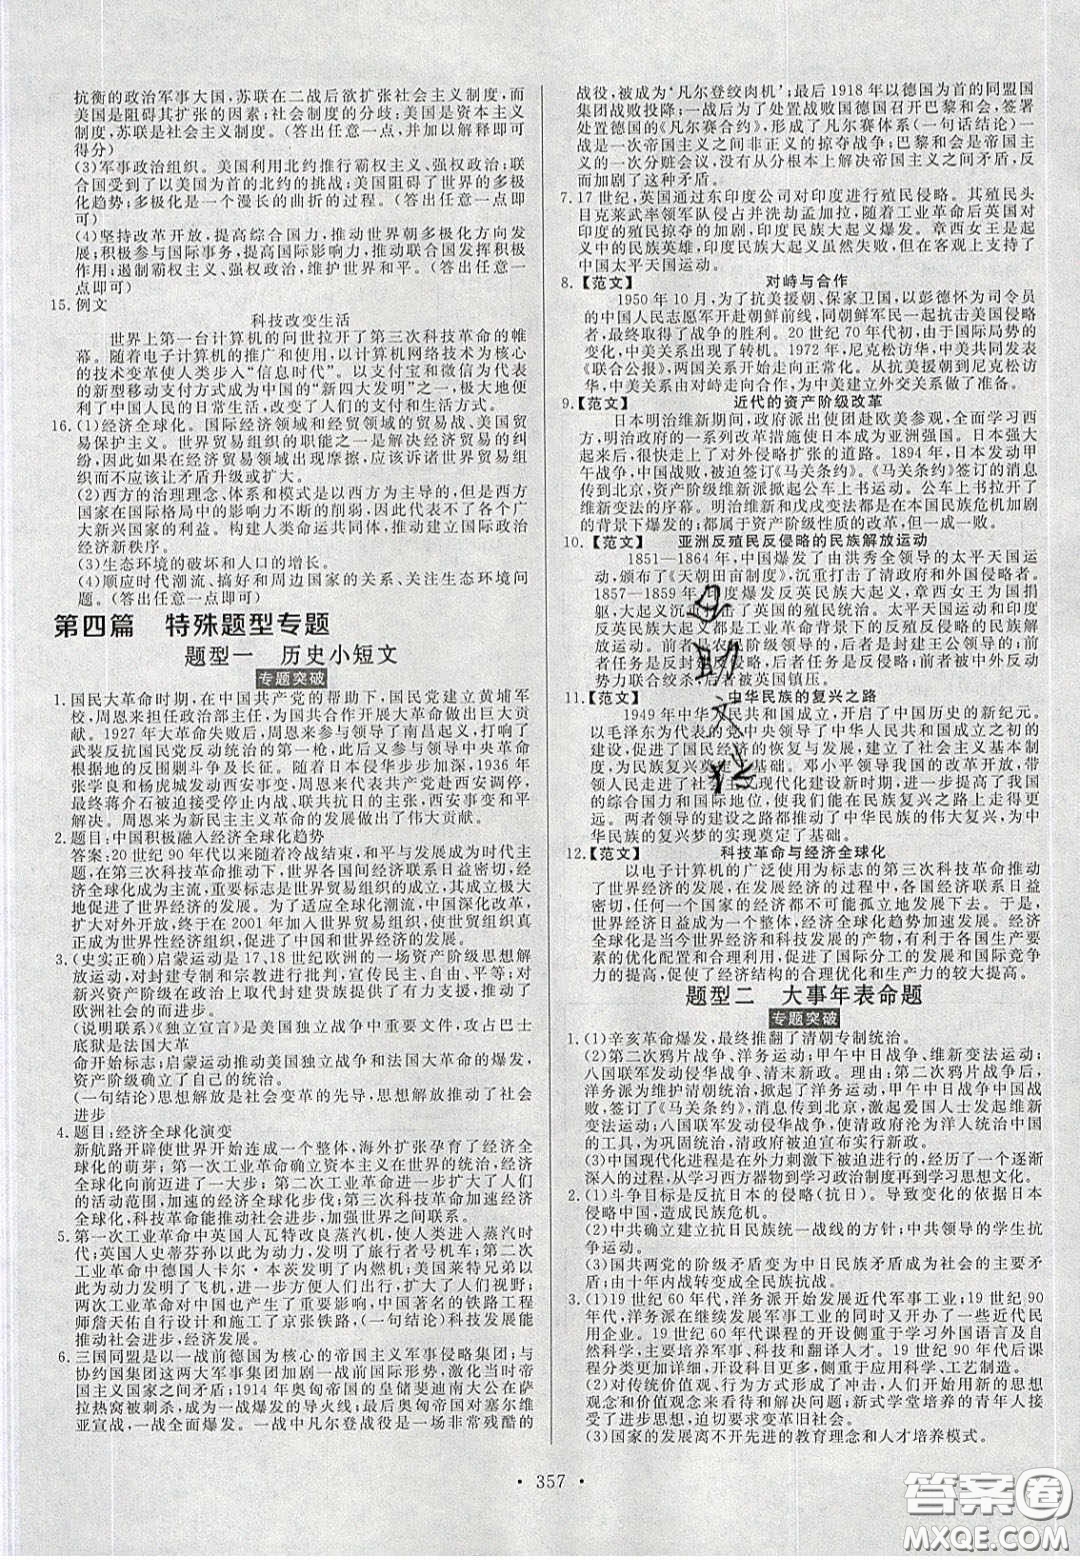 抗衡的政治军事大国，苏联在二战后欲扩张社会主义制度，而
美国是阻碍其扩张的国家；社会制度的分歧；美国是资本主义
制度，苏联是社会主义制度。（答出任意一点，并加以解释即可
得分）
(3)军事政治组织。美国利用北约推行霸权主义、强权政治；联
合国受到了以美国为首的北约的挑战；美国阻碍了世界的多极
化趋势；多极化是一个漫长的曲折的过程。（答出任意一点即
可）
(4)坚持改革开放，提高综合国力，推动世界朝多极化方向发
展；积极参与国际事务，提高国际影响力，推动联合国发挥积极
作用；遏制霸权主义、强权政治，维护世界和平。（答出任意一
点即可）
15. 例文
科技改变生活
世界上第一台计算机的问世拉开了第三次科技革命的帷
幕。随着电子计算机的推广和使用，以计算机网络技术为核心
的技术变革使人类步入“信息时代”。以支付宝和微信为代表
的新型移动支付方式成为中国的“新四大发明”之一，极大地便
利了中国人民的日常生活，改变了人们的支付和生活方式。
16. (1)经济全球化。国际经济领域和经贸领域的贸易战、美国贸
易保护主义。世界贸易组织的职能之一是解决经济贸易的纠
纷，因此在经济贸易领域出现摩擦，应该诉诸世界贸易组织，
而不应该让矛盾升级或扩大。
(2)西方的治理理念、体系和模式是以西方为主导的，但是发展
中国家在国际格局中的影响力不断增强，因此代表不了各个广
大新兴国家的利益。构建人类命运共同体，推动建立国际政治
经济新秩序。
(3)生态环境的破坏和人口的增长。
(4)顺应时代潮流、搞好和周边国家的关系、关注生态环境问
题。（答出任意一点即可）
第四篇　特殊题型专题
题型一　历史小短文
专题突破
1. 国民大革命时期，在中国共产党的帮助下，国民党建立黄埔军
校，周恩来担任政治部主任，为国共合作开展大革命做出巨大
贡献。1927 年大革命失败后，周恩来参与领导南昌起义，打响了
武装反抗国民党反动统治的第一枪，此后又参与领导中央革命
根据地的反围剿斗争及长征。随着日本侵华步步加深，1936 年
张学良和杨虎城发动西安事变，周恩来代表共产党赴西安调停，
最终蒋介石被迫接受停止内战、联共抗日的主张，西安事变和平
解决。周恩来为新民主主义革命的发展做出了巨大贡献。
2. 题目：中国积极融入经济全球化趋势
答案：20 世纪 90 年代以来随着冷战结束，和平与发展成为时代主
题，在第三次科技革命推动下，世界各国间经济联系日益密切，经
济全球化成为主流，重要标志是世界贸易组织的建立，该组织极大
促进了世界经济的发展。为了适应全球化潮流，中国深化改革，
扩大对外开放，终于在 2001 年加入世界贸易组织，使世贸组织真
正成为世界性经济组织，促进了中国和世界经济的发展。
3. (史实正确)启蒙运动是 17、18 世纪欧洲的一场资产阶级思想解
放运动，对封建专制和宗教进行批判，宣传民主、自由、平等；对
新兴资产阶级在政治上取代封建贵族起了有力支持，推动了
欧洲社会的而进步。
(说明联系)《独立宣言》是美国独立战争中重要文件，攻占巴士
底狱是法国大革
命开始标志；启蒙运动推动美国独立战争和法国大革命的爆发，
资产阶级确立了自己的统治。
(一句结论)思想解放是社会变革的先导，思想解放推动了社会
进步
4. 题目：经济全球化演变
新航路开辟使世界开始连成一个整体，海外扩张孕育了经济全
球化的萌芽；第一次工业革命确立资本主义在世界的统治，经济
全球化向前迈进了一大步；第二次工业革命进一步扩大了人们
的活动范围，加速的经济全球化步伐；第三次科技革命加速经济
全球化，科技革命能推动社会进步，加强世界各地的联系。
5. 第一次工业革命中英国人瓦特改良蒸汽机，使人类进入蒸汽时
代；英国人史蒂芬孙以此为动力，发明了旅行者号机车；第二次
工业革命中德国人卡尔·本茨发明了内燃机；美国莱特兄弟以此
为动力发明了飞机，进一步方便人们出行，扩大了人们视野；
两次工业革命对中国也产生了重要影响，中国著名的铁路工程
师詹天佑自行设计和施工了京张铁路，(一句结论)科技发展能
推动社会进步，促进经济发展。
6. 三国同盟是以一战前德国为核心的帝国主义军事侵略集团；与
协约国集团这两大军事集团加剧一战前国际形势，激化了帝国
主义国家之间矛盾；1914 年奥匈帝国的皇储斐迪南大公在萨
拉热窝被刺杀，成为一战的导火线；最后奥匈帝国对塞尔维
亚宣战，一战全面爆发。一战中凡尔登战役是一场非常残酷的
战役，被成为‘凡尔登绞肉机’；最后 1918 年以德国为首的同盟国
集团战败投降；一战后为了处置战败国德国召开巴黎和会，签署
处置德国的《凡尔赛合约》，形成了凡尔赛体系(一句话结论)一
战是一次帝国主义之间非正义的掠夺战争；巴黎和会是帝国主
义的一次分赃会议，没有从分根本上解决帝国主义之间矛盾，反
而加剧了这种矛盾。
7. 17 世纪，英国通过东印度公司对印度进行殖民侵略。其殖民头
目克莱武率领军队侵占并洗劫孟加拉，随着工业革命后英国对
印度的殖民掠夺的加剧，印度民族大起义爆发。章西女王是起
义中的民族英雄，印度民族大起义虽然失败，但在客观上支持了
中国太平天国运动。
8. 【范文】　对峙与合作
1950 年 10 月，为了抗美援朝、保家卫国，以彭德怀为司令员
的中国人民志愿军开赴朝鲜前线，同朝鲜军民一起抗击美国侵略
者，最终取得了战争的胜利。20 世纪 70 年代初，由于国际局势的
变化，中美关系出现了转机。1972 年，尼克松访华，中美共同发表
《联合公报》，两国关系开始走向正常化。从抗美援朝到尼克松访
华，中美关系由对峙走向合作，为中美建立外交关系做了准备。
9. 【范文】　近代的资产阶级改革
日本明治维新期间，政府派出使团赴欧美参观，全面学习西
方，明治政府的一系列改革措施使日本成为亚洲强国。日本强大
起来后，很快走上了对外侵略扩张的道路。1894 年，日本发动甲
午战争，中国战败，被迫签订《马关条约》。《马关条约》签订的消息
传到北京，资产阶级维新派掀起公车上书运动。公车上书拉开了
维新变法的序幕。明治维新和戊戌变法都是在本国民族危机加剧
的背景下爆发的；都属于资产阶级性质的改革，但一成一败。
10. 【范文】　亚洲反殖民反侵略的民族解放运动
1851—1864 年，中国爆发了由洪秀全领导的太平天国运
动，颁布了《天朝田亩制度》，沉重打击了清政府和外国侵略者。
1857—1859 年，印度爆发反英民族大起义，章西女王为国捐
躯，大起义沉重打击了英国的殖民统治。太平天国运动与印度
民族大起义都是工业革命背景下的反抗外来侵略的运动，但是
前者由农民阶级领导，后者由封建王公领导；前者任
务是反封建反侵略，后者任务是反侵略；前者被中外反动
势力联合绞杀，后者被英国镇压。
11. 【范文】　中华民族的复兴之路
1949 年中华人民共和国成立，开启了中国历史的新纪元。
以毛泽东为代表的党中央领导了中华人民共和国成立之初的
建设，促进了国民经济的恢复与发展，建立了社会主义基本制
度，为民族复兴奠定了基础。邓小平领导我国的改革开放，带
领人民走进了社会主义现代化建设新时期，进一步提高了我国
的综合国力和国际地位，使我们在民族复兴之路上走得更
远。两者领导的建设之路都推动了中华民族的伟大复兴，为中
华民族的复兴梦的实现奠定了基础。
12. 【范文】　科技革命与经济全球化
以电子计算机的广泛使用为标志的第三次科技革命推动
了世界经济的发展，在发展经济的过程中，各国经济联系日益
密切，一个国家的经济都不可能孤立地发展下去。于是，
世界经济日益成为一个整体，经济全球化趋势加速发展。经济
全球化是当今世界经济和科技发展的产物，有利于各国生产要
素的优化配置和合理利用，促进了国际分工的发展和国际竞争
力的提高，促进了经济结构的合理优化和生产力的较大提高。
题型二　大事年表命题
专题突破
1. (1)辛亥革命爆发，最终推翻了清朝专制统治。
(2)第二次鸦片战争、洋务运动；甲午中日战争、维新变法运动；
八国联军发动侵华战争、清末新政。理由：第二次鸦片战争后，
洋务派为维护清朝统治，掀起了洋务运动；甲午中日战争中国战
败，签订《马关条约》，消息传到北京，激起爱国人士发起维新变法
运动；八国联军发动侵华战争，使清政府沦为洋人统治中国
的工具，为巩固统治，清政府被迫宣布实行新政。
(3)中国现代化进程是在外力刺激下被迫进行的；经历了一个逐渐
深入的过程，从学习西方器物到学习政治制度再到学习思想文化。
2. (1)斗争目标是反抗日本的侵略(抗日)。导致变化的依据日本
侵略中国，造成民族危机。
(2)中共确立建立抗日民族统一战线的方针；中共领导的学生抗
争运动。
(3)国共两党的阶级矛盾变为中日民族矛盾成为社会的主要矛
盾；由十年内战转变成全民族抗战。
3. (1)19 世纪 60 年代，洋务派开始发展近代军事工业；19 世纪 90
年代，洋务派在继续发展军事工业的同时又开办了一些近代民
用企业。19 世纪 60 年代课程的开设侧重于学习外国语言及自
然科学，主要培养军事、科技和翻译人才。19 世纪 90 年代后课
程分类更加详细，开设科目更多，更侧重应用科学、工艺制造。
(2)对传统价值观、行为方式形成了冲击，人们开始用新的思想
观念和价值观念来看待和解决问题，新式学堂培养的青年人接
受先进思想，迫切要求变革旧社会。
(3)国家的发展离不开先进的教育理念和人才培养模式。
· 357 ·
答案圈
MXQE.COM